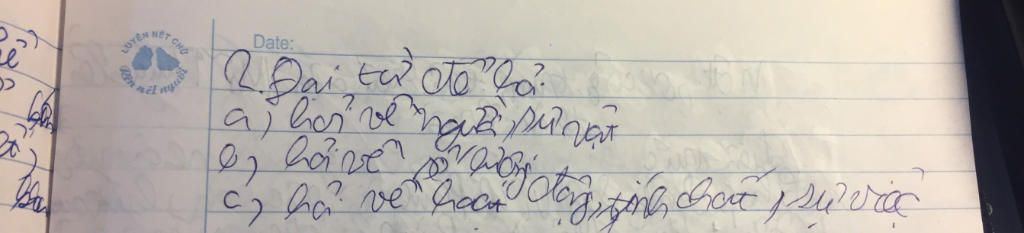 LUYỆN NÉT CHỮ
Rèn nét người
Date:
2. Đại từ để hỏi
a, hỏi về người, sự vật
b, hỏi về số lượng
c, hỏi về hoạt động, tính chất, sự việc